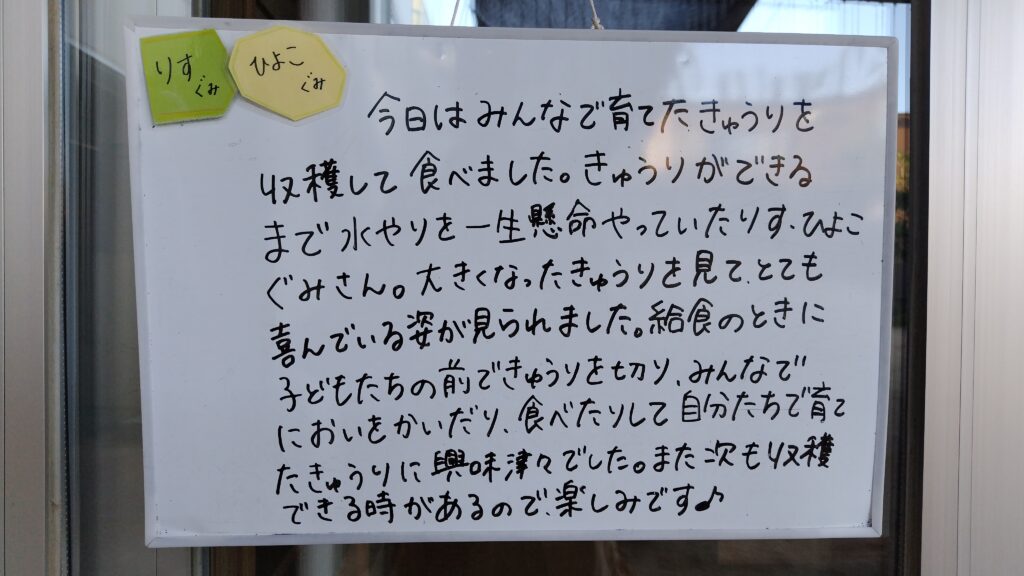 りす
ぐみ
ひよこ
ぐみ
今日はみんなで育てたきゅうりを
収穫して食べました。きゅうりができる
まで水やりを一生懸命やっていたりす、ひよこ
ぐみさん。大きくなったきゅうりを見て、とても
喜んでいる姿が見られました。給食のときに
子どもたちの前できゅうりを切り、みんなで
においをかいだり、食べたりして自分たちで育て
たきゅうりに興味津々でした。また次も収穫
できる時があるので、楽しみです♪